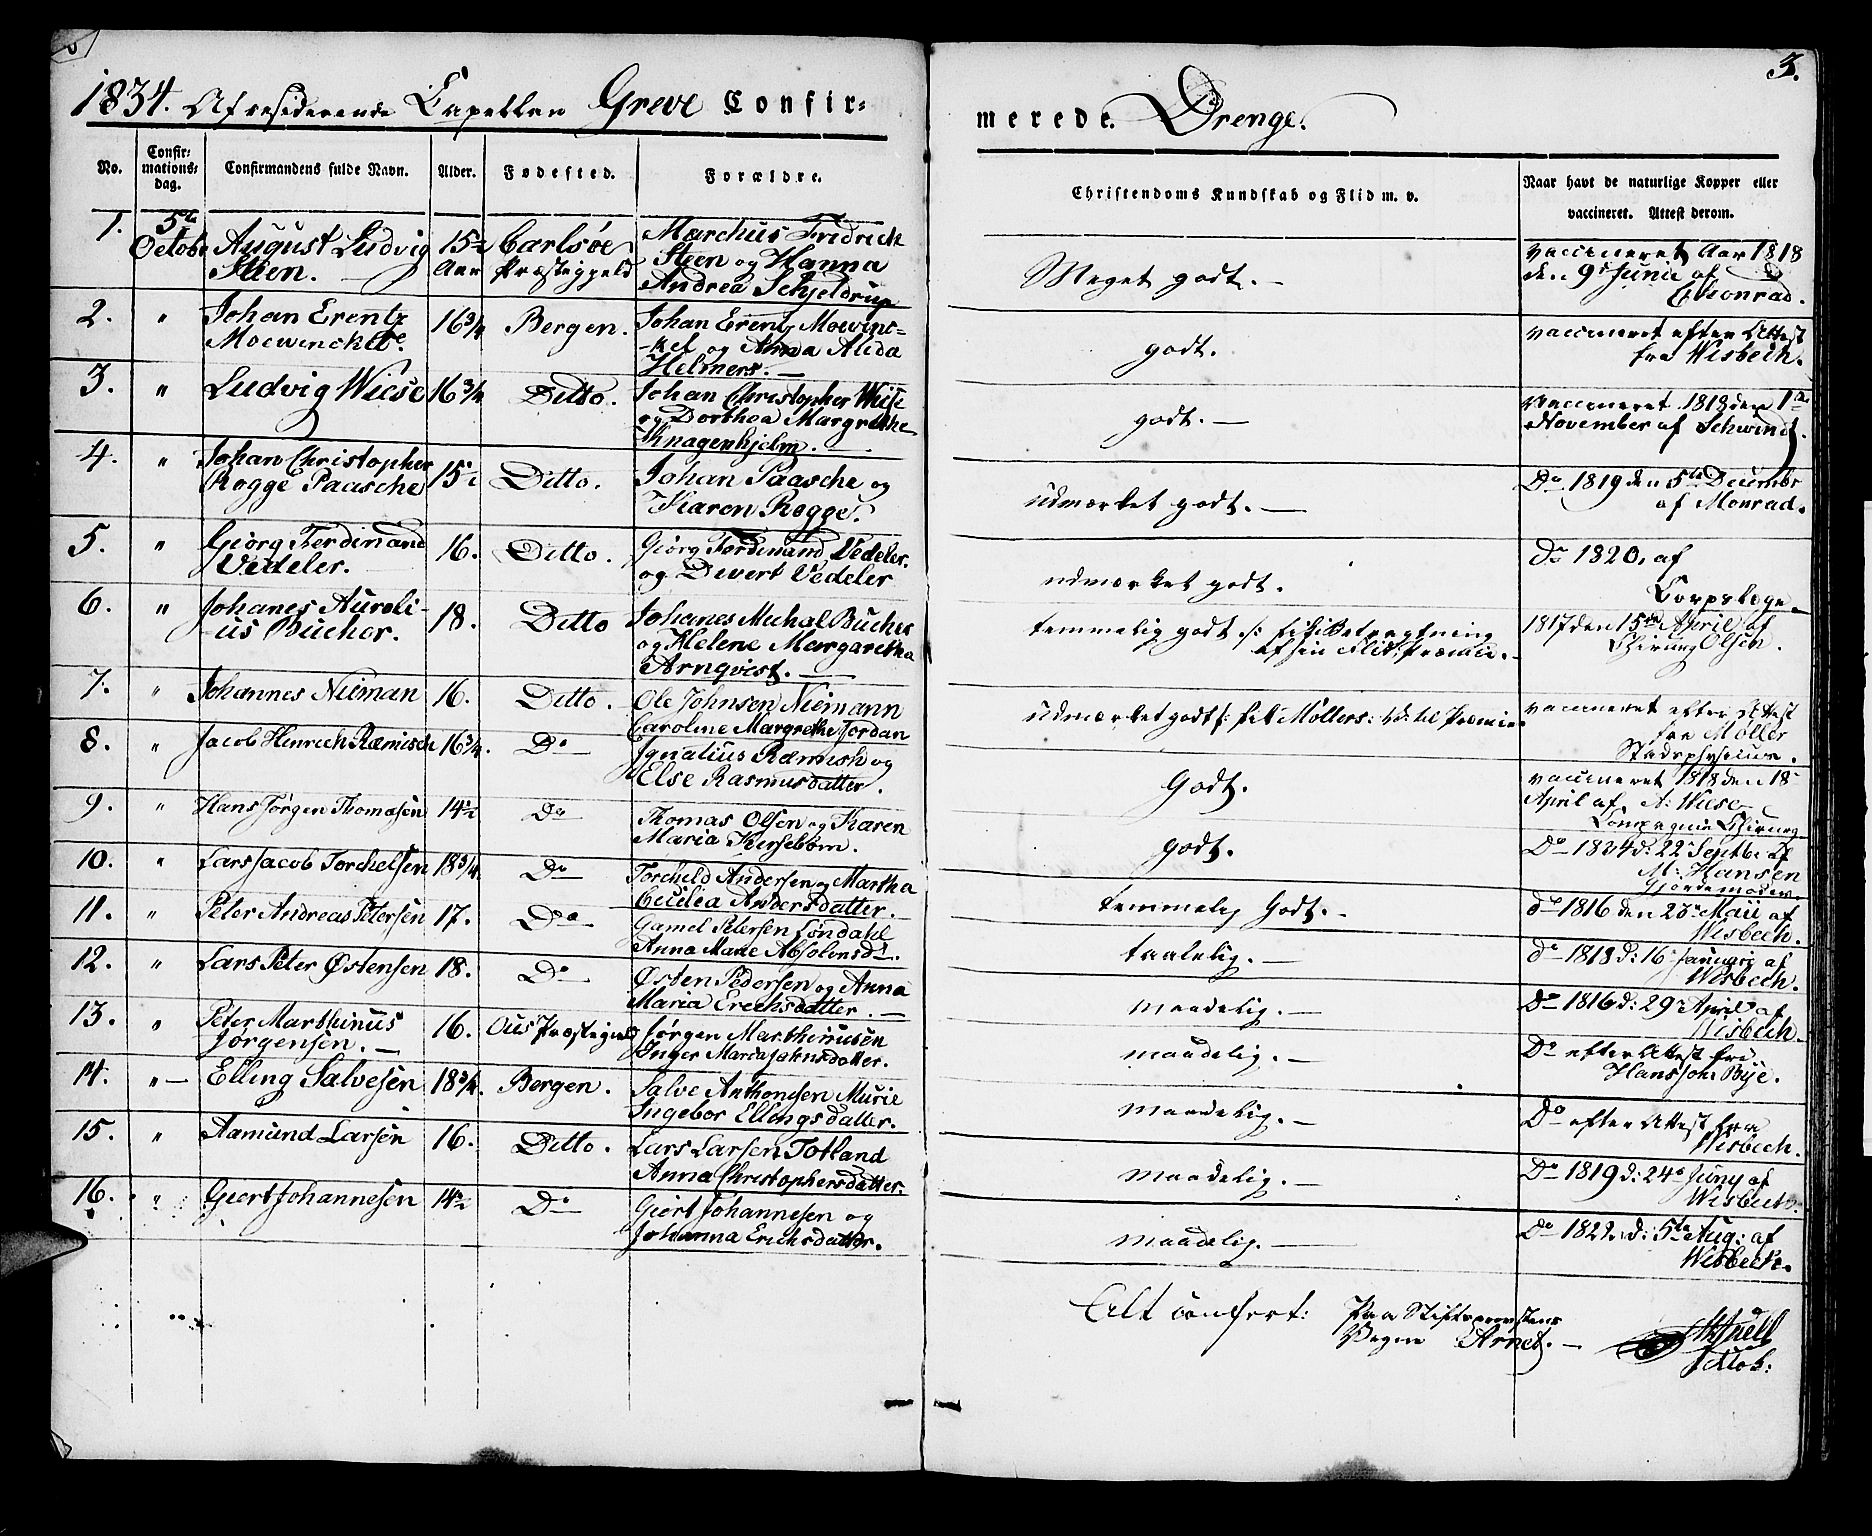 3.
1834. Af residerende Capellan Greve Confir-
merede. Drenge.
No. Confir-mations-dag. Confirmandens fulde Navn. Alder. Fødested. Forældre.
Christendoms Kundskab og Flid m. v. Naar havt de naturlige Kopper eller vaccineret. Attest derom.
1. 5te October August Ludvig Steen. 15½ Aar Carlsøe Præstegjeld Marchus Fridrich
Steen og Hanna
Andrea Schjeldrup
Meget godt. vaccineret Aar 1818
den 9de Junii af
Monrad.
2. " Johan Erentz Moewinckel. 16 3/4 Bergen. Johan Erentz Moewinc-
-kel og Anna Alida
Helmers.
godt. vaccineret efter Attest
fra Wisbech.
3. " Ludvig Wiese 16 3/4 Ditto. Johan Christopher Wiese
og Dorthea Margrethe
Knagenhjelm.
godt. vaccineret 1818 den 1de
November af Schwindt.
4. " Johan Christopher Rogge Paasche 15½ Ditto. Johan Paasche og
Karen Rogge.
udmærket godt. Do 1819 den 5te Decembr
af Monrad.
5. " Giørg Ferdinand Vedeler. 16. Ditto. Giørg Ferdinand Vedeler.
og Devert Vedeler
udmærket godt. Do 1820. af
Corpslæge
6. " Johanes Aureli-
-us Bucher. 18. Ditto Johanes Michal Bucher
og Helene Margaretha
Arnqvist.
temmelig godt
af sin Flid Præmie. 1817 den 15de April af
Chirurg Olsen.
7. " Johannes Nieman 16. Ditto. Ole Johnsen Niemann
Caroline Margrethe Jordan
udmærket godt fik Møllers til Præmie vaccineret efter Attest
fra Møller
Stadsphysicus.
8. " Jacob Henrich Ræmisch 16 3/4. Do Ignatius Ræmish og
Else Rasmusdatter.
Godt. vaccineret 1818 den 18
April af A: Wiese
Compagnie Chirurg
9. " Hans Jørgen Thomasen 14½ Do Thomas Olsen og Karen
Maria Kersebom.
godt. Do 1824 d: 22 Septb: af
M: Hansen
Gjordemoder
10. " Lars Jacob Torchelsen 18 3/4. Do Torchild Andersen og Martha
Cecilia Andersdatter.
temmelig Godt. do 1816 den 23de Maii af
Wisbech.
11. " Peter Andreas Petersen 17. Do Gamel Petersen Løndahl
Anna Marie Absolonsdr.
taalelig. do 1818 d: 16 Januari af
Wisbech.
12. " Lars Peter Østensen 18. Do Østen Pedersen og Anna
Maria Erechsdatter.
maadelig. Do 1816 d: 29 April af
Wisbech
13. " Peter Marthinus
Jørgensen. 16. Ous Præstegield Jørgen Marthinusen
Inger Maria Jahnsdatter.
maadelig. Do efter Attest fra
Hans Joh: Bye.
14. " Elling Salvesen 18 3/4. Bergen. Salve Anthonisen Murie
Ingebor Ellingsdatter.
maadelig. Do efter Attest fra
Wisbech.
15. " Aamund Larsen 16. Ditto. Lars Larsen Totland
Anna Christophersdatter.
maadelig. Do 1819 d: 24de Juny af
Wisbech
16. " Giert Johannesen 14½ Do Giert Johannesen og
Johanna Erichsdatter.
maadelig. Do 1822. d: 5te Aug: af
Wisbech.
Alt confert: Paa Stiftsprovstens
Vegne Arnet.